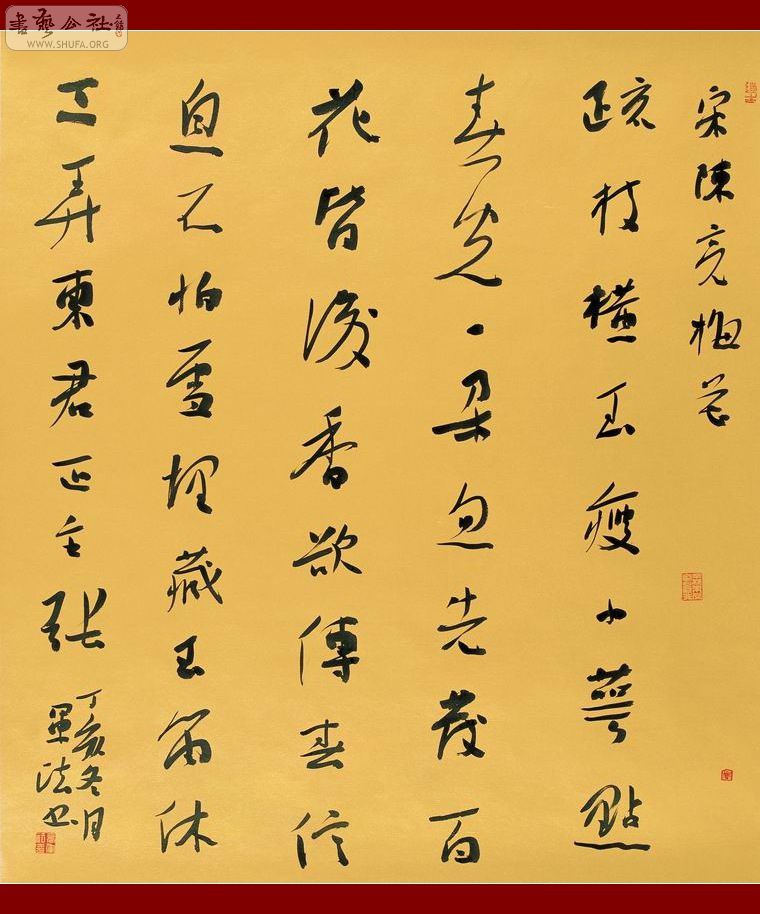 書藝公社
WWW.SHUFA.ORG
宋陳亮梅花
疏枝橫玉瘦小萼點
珠光一朵忽先發百
花皆後香欲傳春信
息不怕雪埋藏玉笛休
三弄東君正主張
丁亥冬月
軍法书